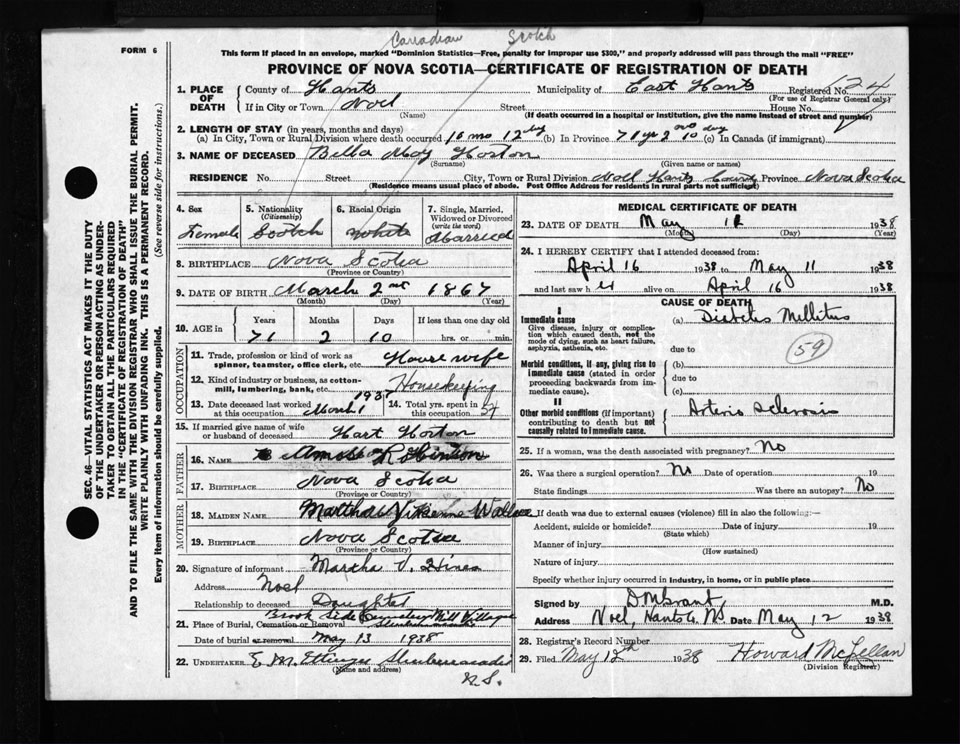 Canadian Scotch
FORM 6
This form if placed in an envelope, marked "Dominion Statistics—Free, penalty for improper use $300," and properly addressed will pass through the mail "FREE"
PROVINCE OF NOVA SCOTIA—CERTIFICATE OF REGISTRATION OF DEATH
124
SEC. 46—VITAL STATISTICS ACT MAKES IT THE DUTY OF THE UNDERTAKER OR PERSON ACTING AS UNDERTAKER TO OBTAIN ALL THE PARTICULARS REQUIRED IN THE "CERTIFICATE OF REGISTRATION OF DEATH" AND TO FILE THE SAME WITH THE DIVISION REGISTRAR WHO SHALL ISSUE THE BURIAL PERMIT.
WRITE PLAINLY WITH UNFADING INK. THIS IS A PERMANENT RECORD.
Every item of information should be carefully supplied. (See reverse side for instructions.)
1. PLACE OF DEATH County of Hants Municipality of East Hants Registered No.
(For use of Registrar General only)
If in City or Town Noel Street House No.
(Name) (If death occurred in a hospital or institution, give the name instead of street and number)
2. LENGTH OF STAY (in years, months and days)
(a) In City, Town or Rural Division where death occurred 16 mo 12 dy (b) In Province 71 yr 2 mo day (c) In Canada (if immigrant)
3. NAME OF DECEASED Bella May Horton
(Surname) (Given name or names)
RESIDENCE No. Street City, Town or Rural Division Noel Hants County Province Nova Scotia
(Residence means usual place of abode. Post Office Address for residents in rural parts not sufficient)
4. Sex 5. Nationality (Citizenship) 6. Racial Origin 7. Single, Married, Widowed or Divorced (write the word)
Female Scotch White Married
8. BIRTHPLACE Nova Scotia
(Province or Country)
9. DATE OF BIRTH March 2nd 1867
(Month) (Day) (Year)
10. AGE in Years Months Days If less than one day old
71 2 10 hrs. or min.
OCCUPATION
11. Trade, profession or kind of work as spinner, teamster, office clerk, etc. House wife
12. Kind of industry or business, as cotton-mill, lumbering, bank, etc. Housekeeping
13. Date deceased last worked at this occupation March 1 1937 14. Total yrs. spent in this occupation 54
15. If married give name of wife or husband of deceased Hart Horton
FATHER
16. NAME Amos
17. BIRTHPLACE Nova Scotia
(Province or Country)
MOTHER
18. MAIDEN NAME Martha Wallace
19. BIRTHPLACE Nova Scotia
(Province or Country)
20. Signature of informant Martha V. Hines
Address Noel
Relationship to deceased Daughter
21. Place of Burial, Cremation or Removal Brook Side Cemetery Mill Village
Date of burial or removal May 13 1938
22. UNDERTAKER E M Ettinger Shubenacadie
(Name and address)
N.S.
MEDICAL CERTIFICATE OF DEATH
23. DATE OF DEATH May 12 1938
(Month) (Day) (Year)
24. I HEREBY CERTIFY that I attended deceased from:
April 16 1938 to May 11 1938
and last saw h er alive on April 16 1938
CAUSE OF DEATH
I
Immediate cause (a) Diabetis Mellitus
Give disease, injury or complication which caused death, not the mode of dying, such as heart failure, asphyxia, asthenia, etc.
due to
59
Morbid conditions, if any, giving rise to immediate cause (stated in order proceeding backwards from immediate cause).
(b)
due to
(c)
II
Other morbid conditions (if important) contributing to death but not causally related to immediate cause.
Arterio sclerosis
25. If a woman, was the death associated with pregnancy? No
26. Was there a surgical operation? No Date of operation 19
State findings Was there an autopsy? No
If death was due to external causes (violence) fill in also the following:—
Accident, suicide or homicide? Date of injury 19
(State which)
Manner of injury
(How sustained)
Nature of injury
Specify whether injury occurred in industry, in home, or in public place
Signed by M.D.
Address Noel, Hants Co. N.S. Date May 12 1938
28. Registrar's Record Number
29. Filed May 12th 1938 Howard McLellan
(Division Registrar)